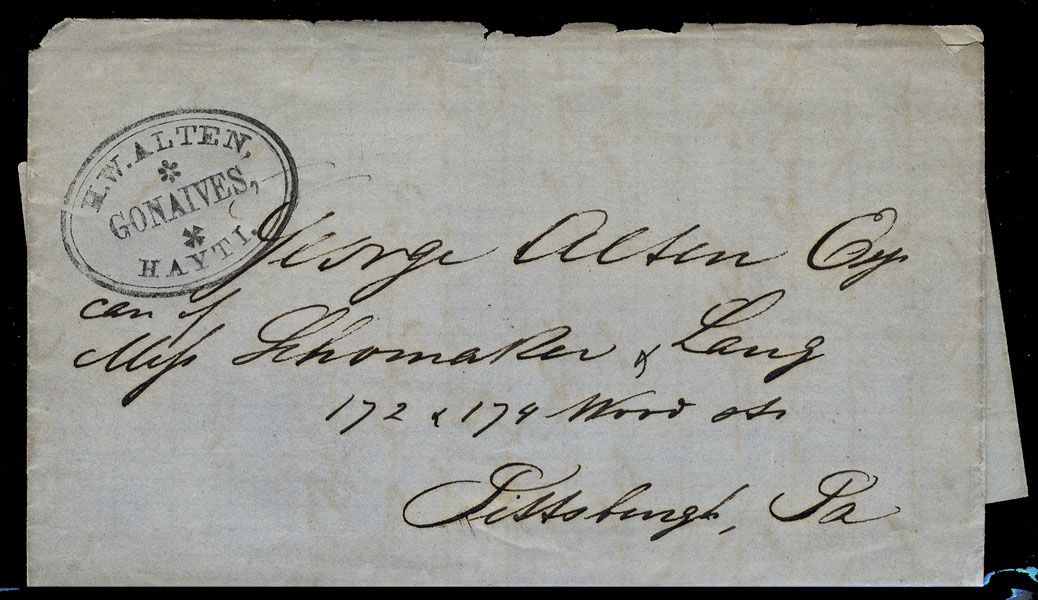 H.W. ALTEN,
GONAIVES,
HAYTI.
George Alten Esqr
care of
Mess Schomaker & Lang
172 & 174 Wood str
Pittsburgh, Pa